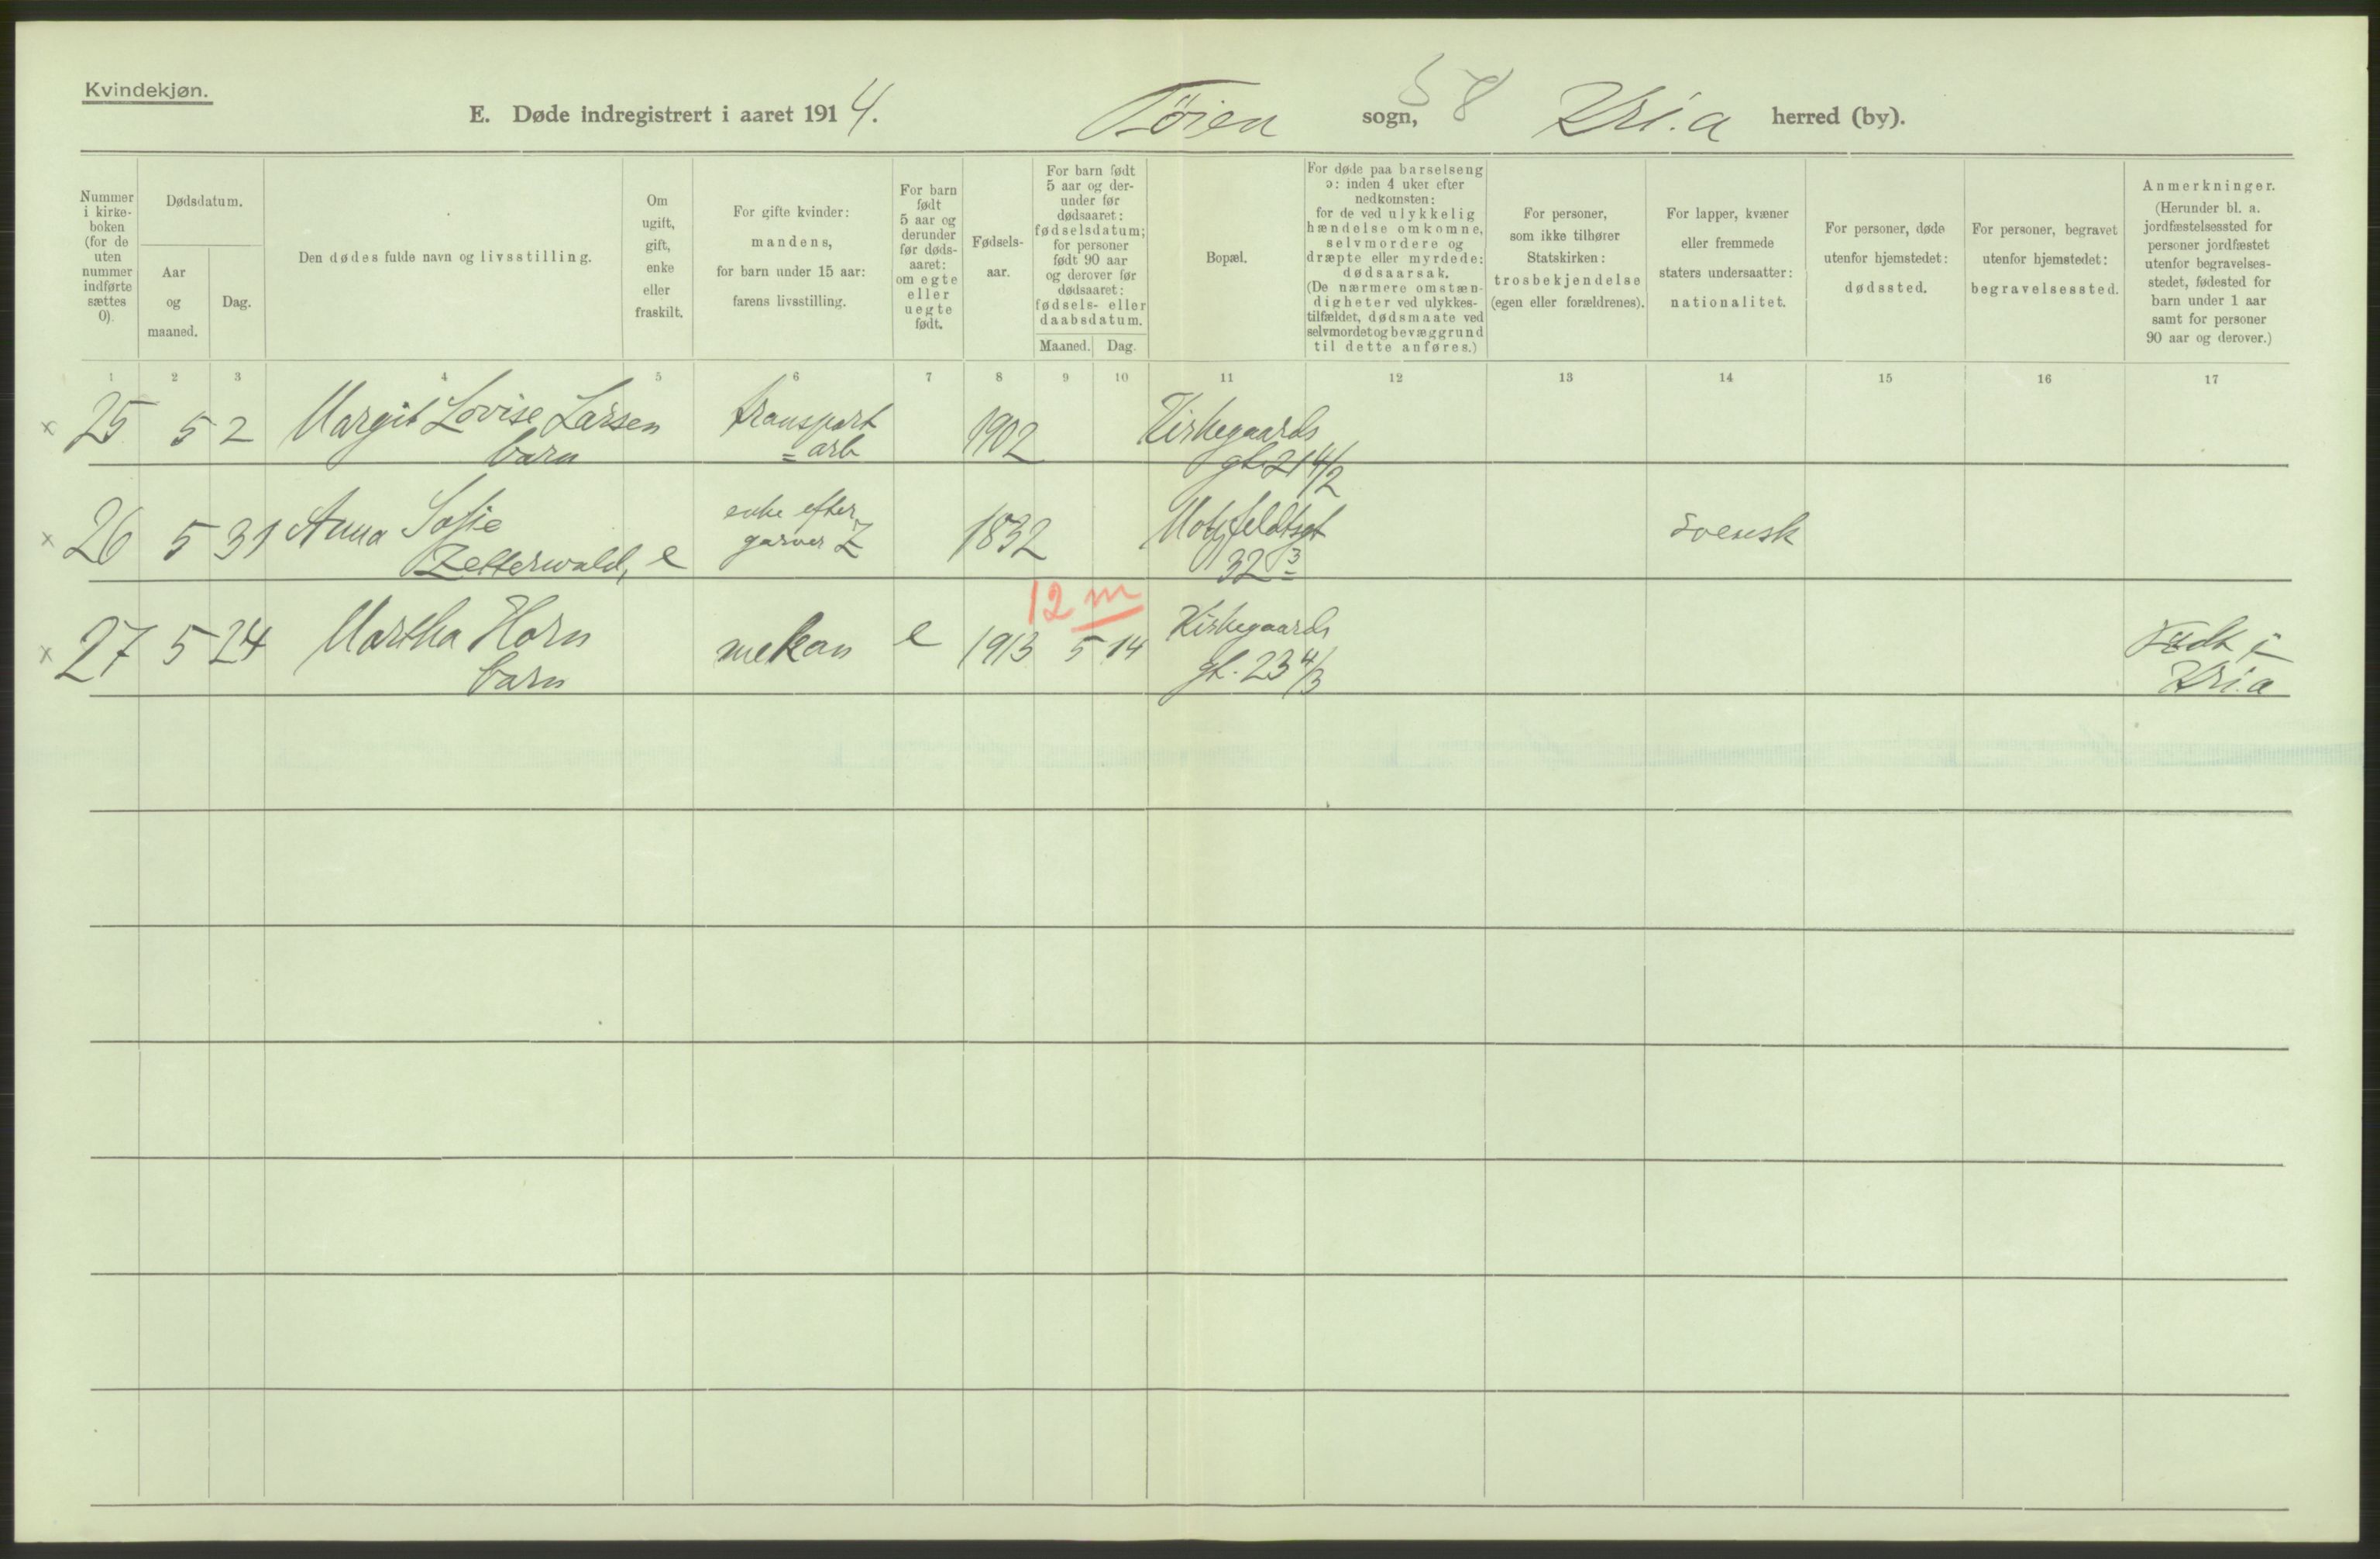 Kvindekjøn.
E. Døde indregistrert i aaret 1914. Tøien sogn, 58 Kri.a herred (by).
Nummer
i kirke-
boken
(for de
uten
nummer
indførte
sættes
0).
Dødsdatum.
Aar
og
maaned.
Dag.
Den dødes fulde navn og livsstilling.
Om
ugift,
gift,
enke
eller
fraskilt.
For gifte kvinder:
mandens,
for barn under 15 aar:
farens livsstilling.
For barn
født
5 aar og
derunder
før døds-
aaret:
om egte
eller
uegte
født.
Fødsels-
aar.
For barn født
5 aar og der-
under før
dødsaaret:
fødselsdatum;
for personer
født 90 aar
og derover før
dødsaaret:
fødsels- eller
daabsdatum.
Maaned.
Dag.
Bopæl.
For døde paa barselseng
ɔ: inden 4 uker efter
nedkomsten:
for de ved ulykkelig
hændelse omkomne,
selvmordere og
dræpte eller myrdede:
dødsaarsak.
(De nærmere omstæn-
digheter ved ulykkes-
tilfældet, dødsmaate ved
selvmordet og bevæggrund
til dette anføres.)
For personer,
som ikke tilhører
Statskirken:
trosbekjendelse
(egen eller forældrenes).
For lapper, kvæner
eller fremmede
staters undersaatter:
nationalitet.
For personer, døde
utenfor hjemstedet:
dødssted.
For personer, begravet
utenfor hjemstedet:
begravelsessted.
Anmerkninger.
(Herunder bl. a.
jordfæstelsessted for
personer jordfæstet
utenfor begravelses-
stedet, fødested for
barn under 1 aar
samt for personer
90 aar og derover.)
1 2 3 4 5 6 7 8 9 10 11 12 13 14 15 16 17
x 25 5 2 Margit Lovise Larsen transport 1902 Kirkegaards
barn = arb gt. 21 4/2
x 26 5 31 Anna Sofie enke efter 1832 Motzfeldtsgt svensk
Zetterwald, e garver Z 32 3
12 m
x 27 5 24 Martha Horn mekan e 1913 5 14 Kirkegaards Født i
barn gt. 23 4/3 Kri.a